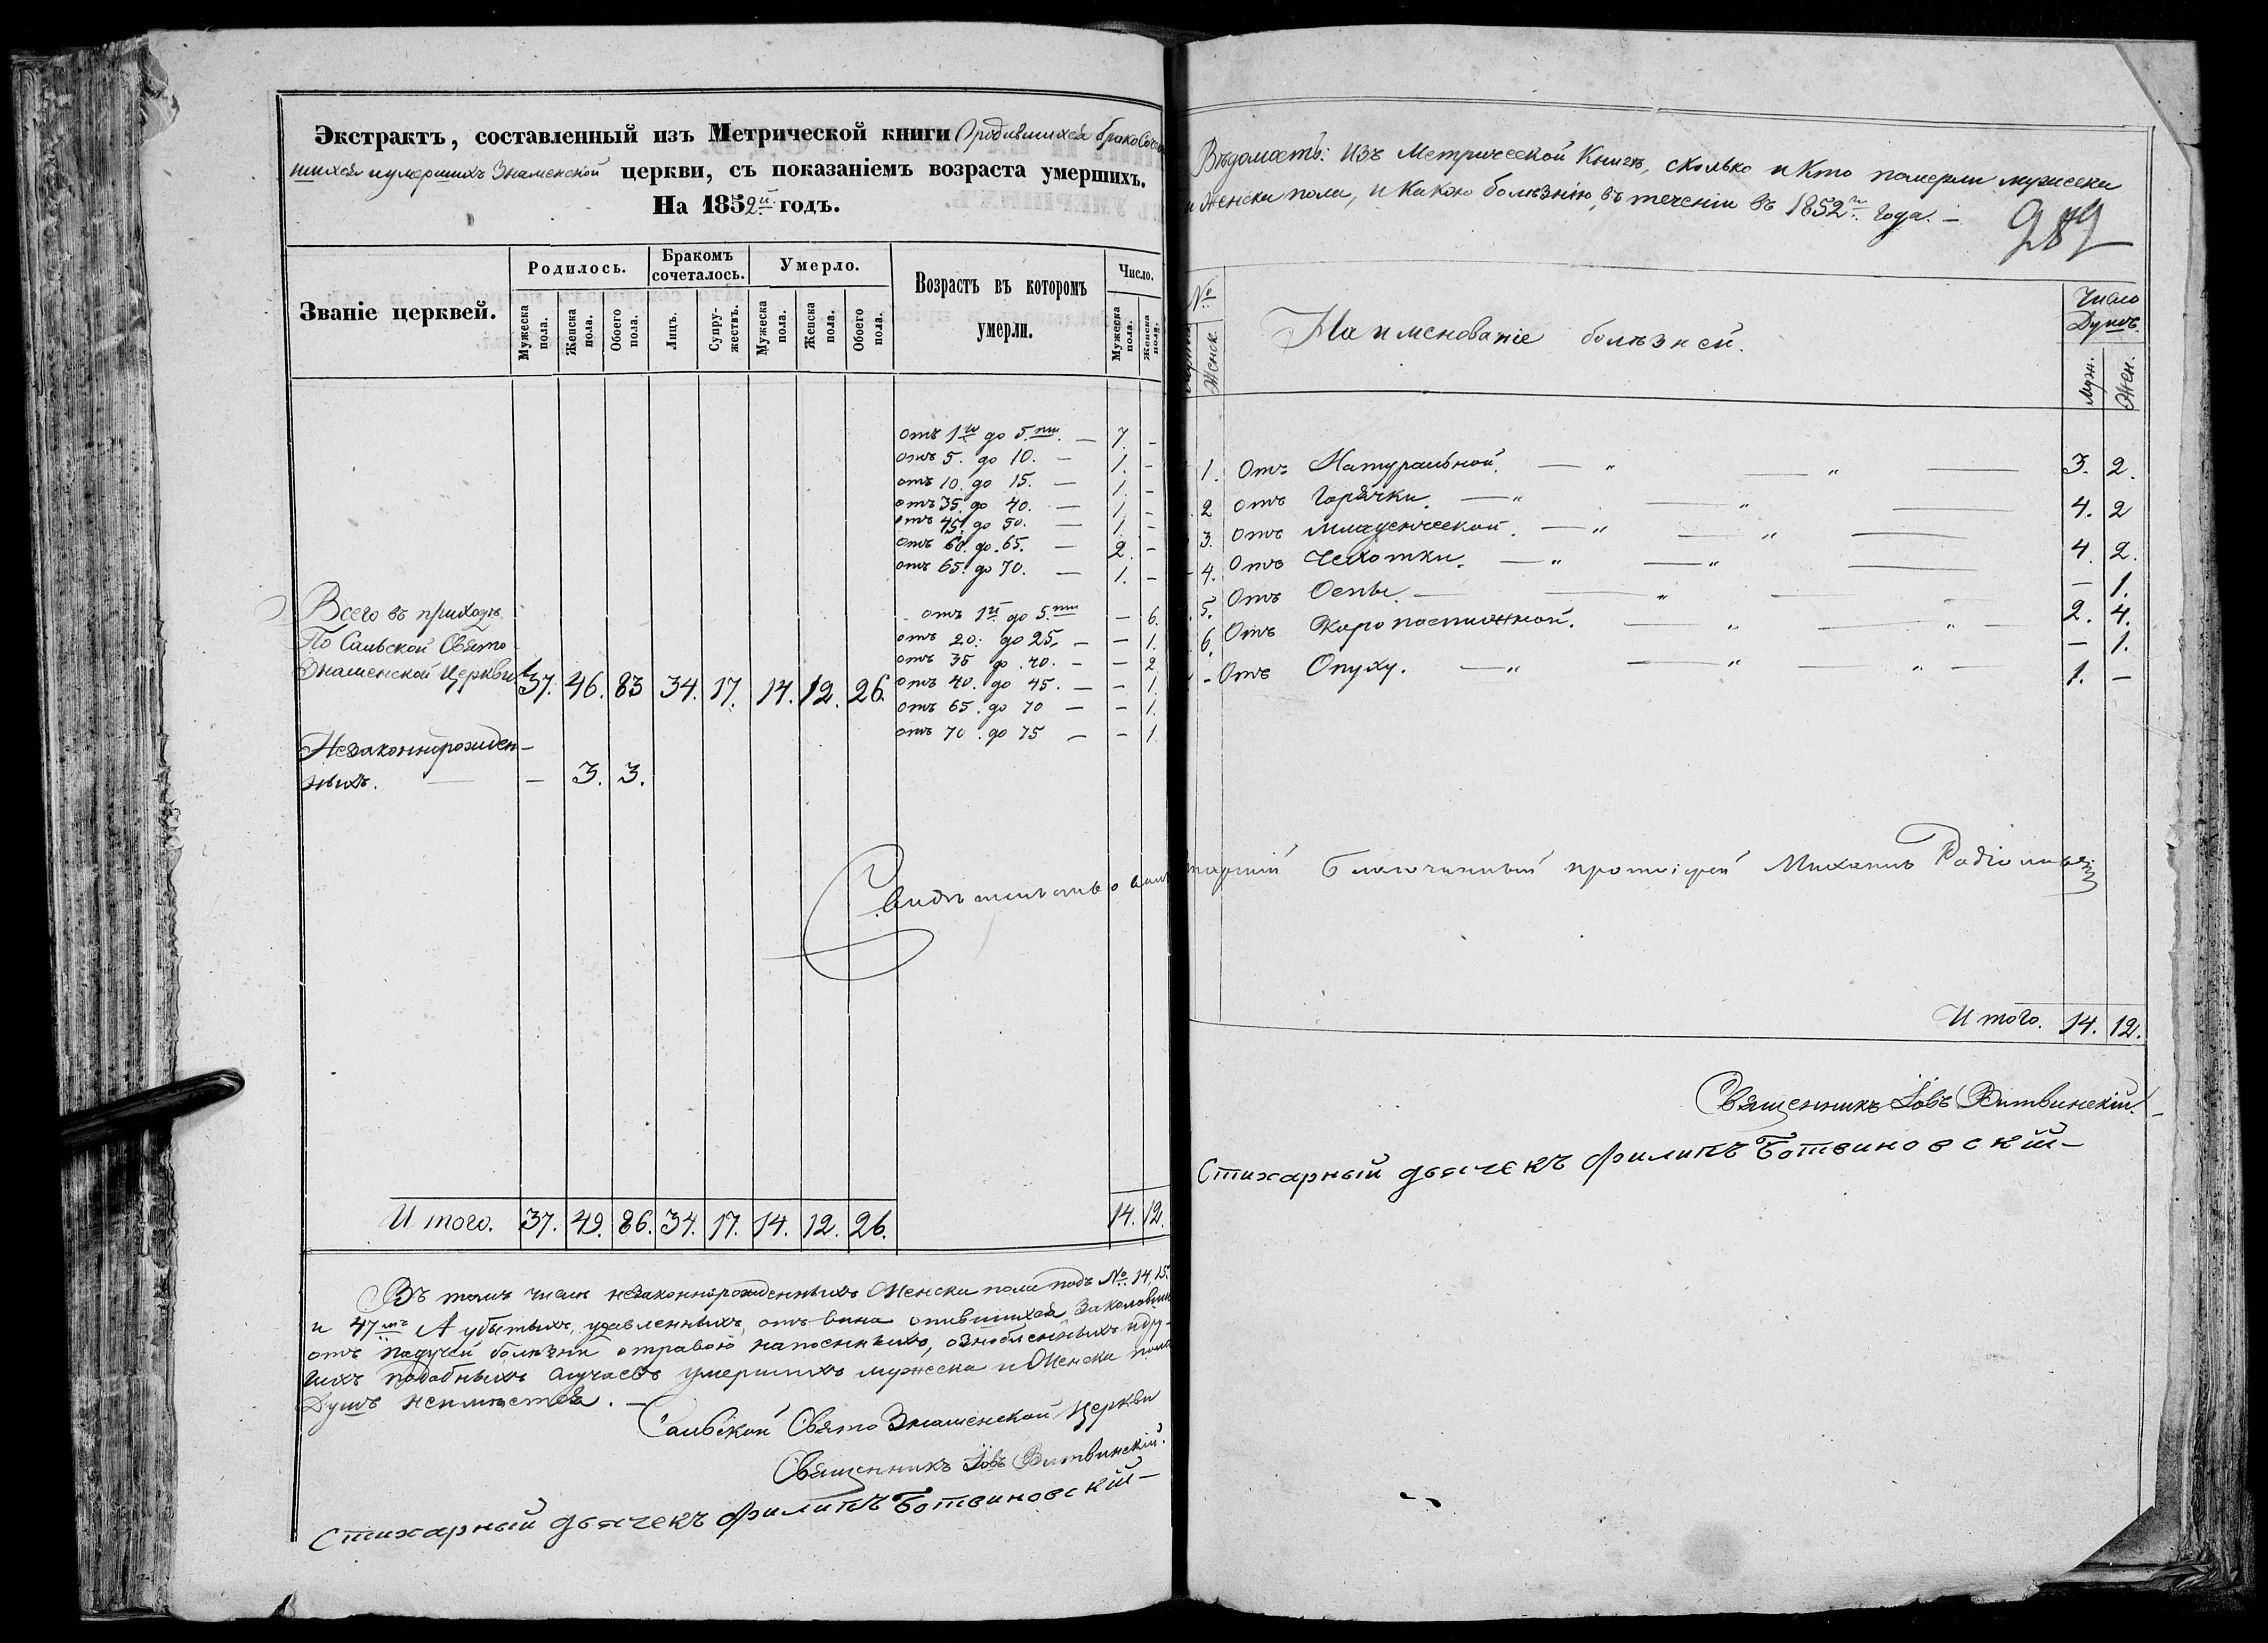 Экстрактъ, составленный изъ Метрической книги О родившихся бракосоче
шихся и умершихъ Знаменской церкви, съ показаніемъ возраста умершихъ.
На 1852й годъ.
Званіе церквей.
Родилось.
Бракомъ сочеталось.
Умерло.
Возрастъ въ которомъ умерли.
Число.
Мужеска пола.
Женска пола.
Обоего пола.
Лицъ.
Супружествъ.
Мужеска пола.
Женска пола.
Обоего пола.
Мужеска пола.
Женска пола.
отъ 1го до 5ти. — 7. -
отъ 5. до 10. — 1. -
отъ 10. до 15. — 1. -
отъ 35. до 40. — 1. -
отъ 45. до 50. — 1. -
отъ 60. до 65. — 2. -
отъ 65. до 70. — 1. -
отъ 1й до 5ти - 6.
отъ 20. до 25. - - 1.
отъ 35 до 40. - - 2
отъ 40. до 45. - - 1.
отъ 65. до 70 - - 1.
отъ 70. до 75 - - 1.
Всего въ приходѣ
По Сальской Свято
Знаменской Церкви 37. 46. 83 34. 17. 14. 12. 26.
Незаконнорожден-
ныхъ. — — 3. 3.
Итого. 37. 49. 86. 34. 17. 14. 12. 26. 14. 12.
Въ томъ числѣ незаконнорожденныхъ Женска пола подъ № 14, 15.
и 47мъ А убитыхъ, удавленныхъ, отъ вина опившихся
отъ падучей болѣзни отравою напоенныхъ, ознобленныхъ и дру-
гихъ подобныхъ случаевъ умершихъ мужеска и Женска пола
Душъ неимѣется. —
Сальской Свято Знаменской Церкви
Священникъ Іовъ Витвинскій.
Стихарный дьячекъ Филипъ Ботвиновскій-
Вѣдомость: Изъ Метрической Книги, сколько и Кто померли мужеска
и Женска пола, и Какою болѣзнію, въ теченіи въ 1852м. Года. -
№
Женск.
Наименованіе болѣзней.
Число Душъ.
Муж.
Жен.
1. Отъ Натуральной. — " — " — 3. 2.
2 отъ Горячки. — " — " — 4. 2
3. отъ Младенческой. — " — " — 4. 2.
4. Отъ Чехотки. — " — " — - 1.
5. Отъ Оспы. — " — " 2. 4.
6. Отъ — " — " - - 1.
- Отъ Опуху. — " — " — " - 1. -
Свидетельствовалъ Старшій Благочинный протоіерей Михаилъ
Итого. 14. 12.
Священникъ Іовъ Витвинскій.
Стихарный дьячекъ Филипъ Ботвиновскій-